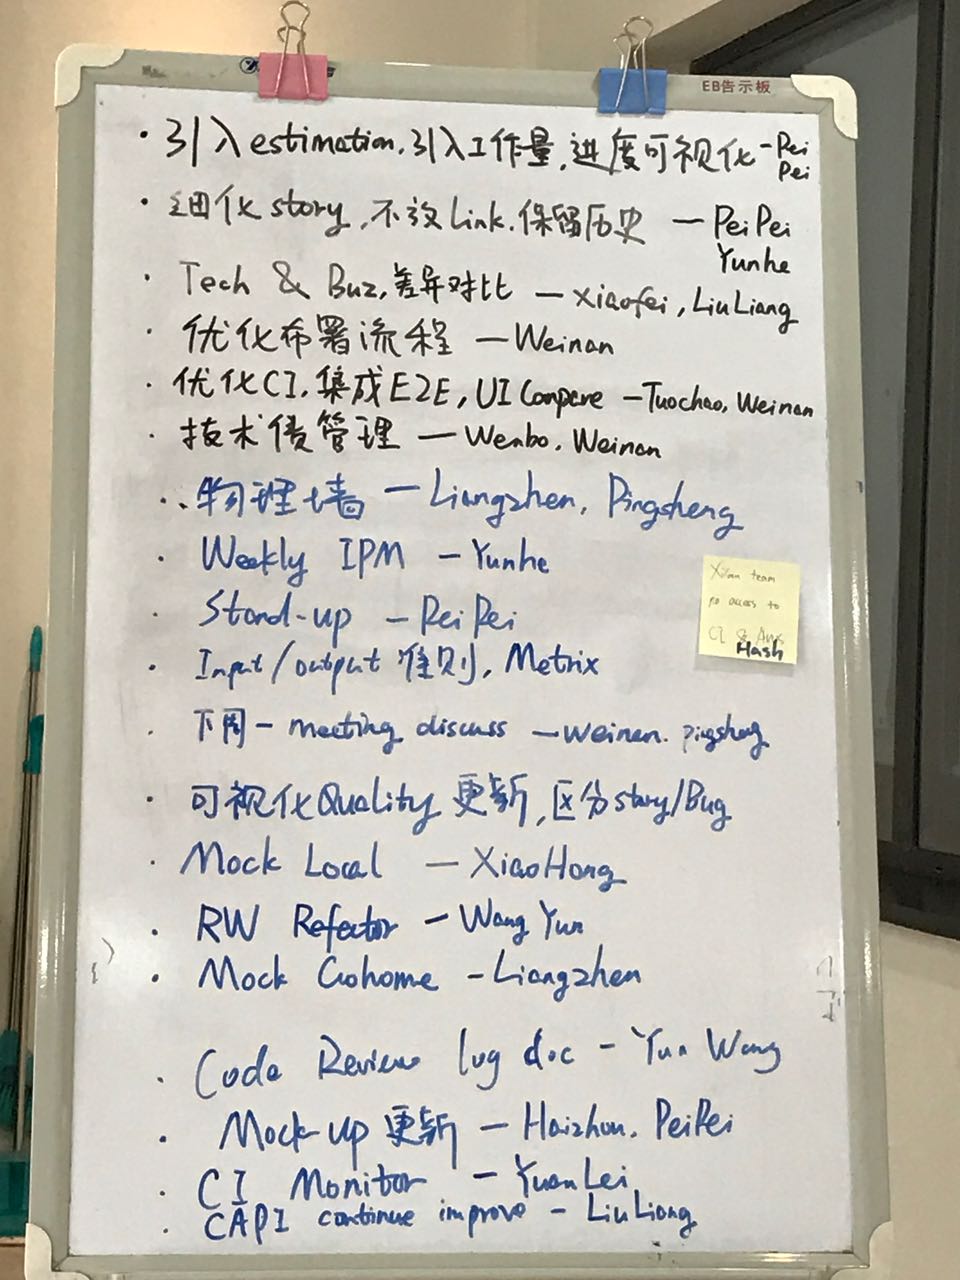 EB告示板
· 引入estimation.引入工作量,进度可视化-Pei
Pei
· 细化story,不放Link.保留历史 — PeiPei
Yunhe
· Tech & Buz,差异对比 — Xiaofei, LiuLiang
· 优化布署流程 — Weinan
· 优化CI,集成E2E, UI Compare - Tuochao, Weinan
· 技术债管理 — Wenbo, Weinan
· 物理墙 — Liangzhen, Pingsheng
· Weekly IPM - Yunhe
· Stand-up - PeiPei
· Input/output 准则, Metrix
· 下周一 meeting discuss — Weinan. pingsheng
· 可视化Quality 更新,区分story/Bug
· Mock Local — XiaoHong
· RW Refactor - Wang Yun
· Mock Gohome - Liangzhen
· Code Review log doc - Yun Wang
· Mock-up 更新 - Haizhun, PeiPei
· CI Monitor - YuanLei
· CAPI continue improve - LiuLiang
Xi'an team
no access to
CI &
Hash